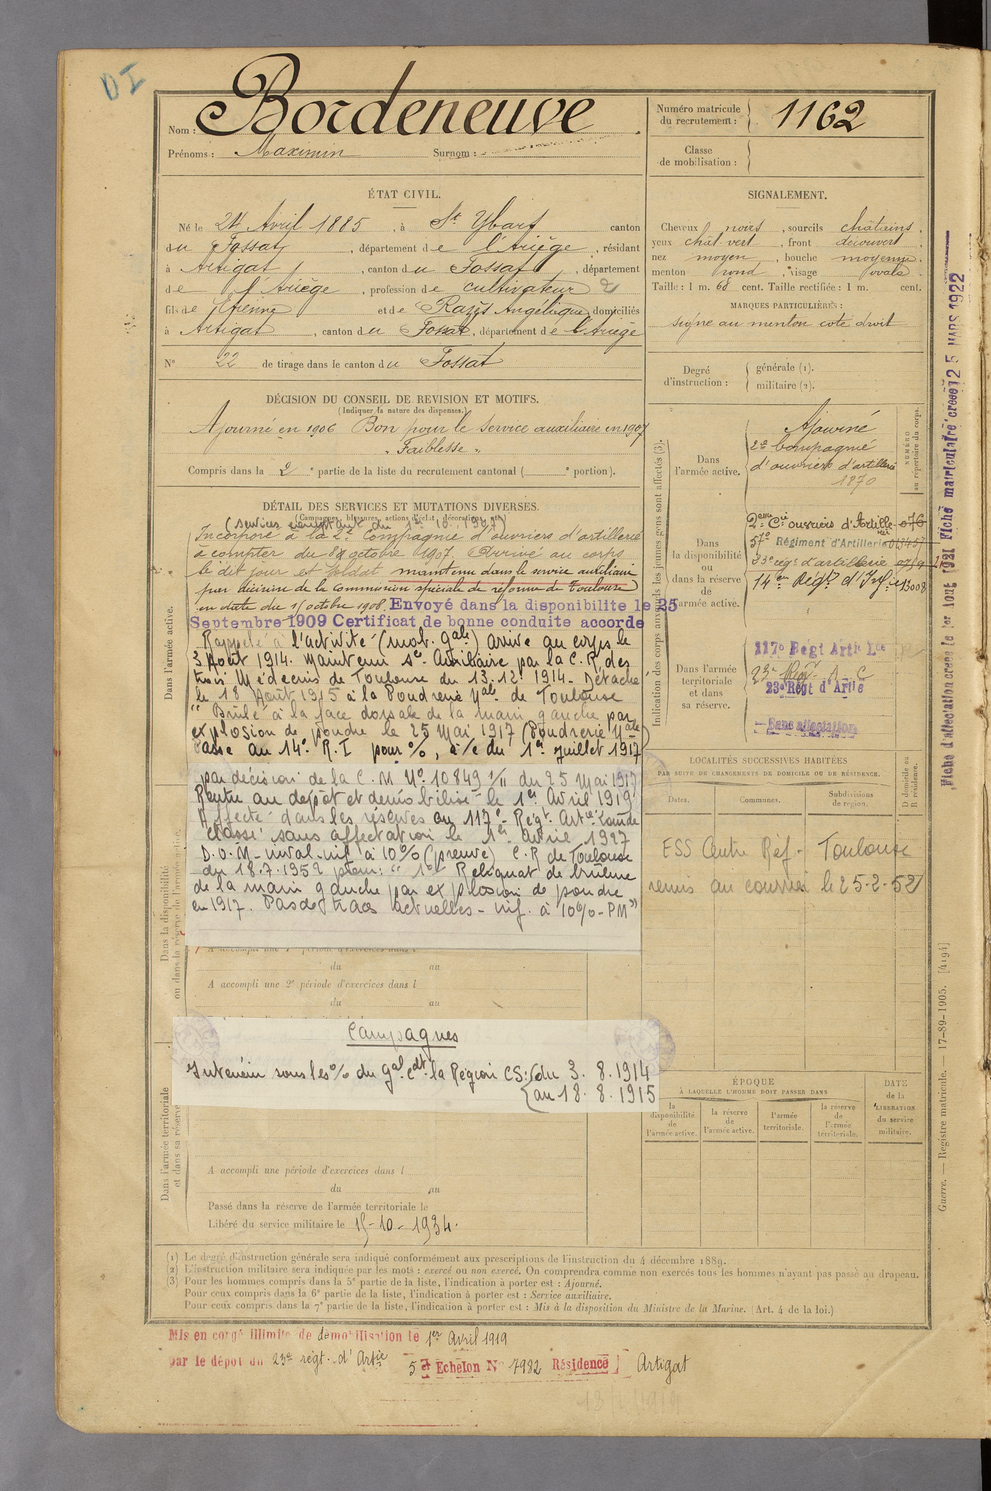 DI
Nom : Bordeneuve
Prénoms : Maximin Surnom :
Numéro matricule du recrutement : 1162
Classe de mobilisation :
ÉTAT CIVIL.
Né le 24 Avril 1885, à St Ybars canton
du Fossat, département de l'Ariège, résidant
à Artigat, canton du Fossat, département
de l'Ariège, profession de cultivateur
fils de Etienne et de Razès Angélique, domiciliés
à Artigat, canton du Fossat, département de l'Ariège
N° 22 de tirage dans le canton du Fossat
SIGNALEMENT.
Cheveux noirs, sourcils châtains
yeux chât vert, front découvert
nez moyen, bouche moyenne
menton rond, visage ovale
Taille : 1 m. 68 cent. Taille rectifiée : 1 m. cent.
MARQUES PARTICULIÈRES :
signe au menton coté droit
Degré d'instruction : générale (1). militaire (2).
DÉCISION DU CONSEIL DE REVISION ET MOTIFS.
(Indiquer la nature des dispenses.)
Ajourné en 1906 Bon pour le service auxiliaire en 1907
" Faiblesse "
Compris dans la 2e partie de la liste du recrutement cantonal ( e portion).
DÉTAIL DES SERVICES ET MUTATIONS DIVERSES.
(Campagnes, blessures, actions d'éclat, décorations, etc.)
Incorporé à la 2e Compagnie d'ouvriers d'artillerie
à compter du 8 octobre 1907. Arrivé au corps
le dit jour et soldat maintenu dans le service auxiliaire
par décision de la Commission spéciale de réforme de Toulouse
en date du 15 octobre 1908. Envoyé dans la disponibilite le 25
Septembre 1909 Certificat de bonne conduite accorde
Rappelé à l'activité (mob. gale) arrivé au corps le
3 Août 1914. Maintenu sce Auxiliaire par la C. R. des
trois Médecins de Toulouse du 13.12.1914. Détaché
le 18 Août 1915 à la Poudrerie Nale de Toulouse
" Brûlé à la face dorsale de la main gauche par
explosion de poudre le 25 Mai 1917 (Poudrerie Nale)
Passé au 14e R.I pour %, à/c du 1er juillet 1917
par décision de la C. M No 10849 1/11 du 25 Mai 1917
Rentré au dépôt et démobilisé le 1er Avril 1919
Affecté dans les réserves au 117e Régt. Artie Lourde
Classé sans affectation le 1er Avril 1927
D.O.M - inval-inf à 10% (preuve) C.R de Toulouse
du 18.7.1952 pour : " 1° Reliquat de brûlure
de la main gauche par explosion de poudre
en 1917. Pas de traces actuelles - inf. à 10% - PM"
A accompli une 1re période d'exercices dans l
du au
A accompli une 2e période d'exercices dans l
du au
Campagnes
Intérieur sous les % du gal Cdt la Région CS: du 3.8.1914
au 18.8.1915
A accompli une période d'exercices dans l
du au
Passé dans la réserve de l'armée territoriale le
Libéré du service militaire le 15-10-1934.
Dans l'armée active.
Dans la disponibilité
ou dans la réserve de l'armée active.
Dans l'armée territoriale
et dans sa réserve.
Indication des corps auxquels les jeunes gens sont affectés (3).
Dans l'armée active.
Ajourné
2e Compagnie
d'ouvriers d'artillerie
1270
NUMÉRO au répertoire du corps.
Dans la disponibilité ou dans la réserve de l'armée active.
2eme Cie ouvriers d'Artille 076
57e Régiment d'Artillerie
23e régt d'artillerie
14e Régt d'Inf. 13008
Dans l'armée territoriale et dans sa réserve.
117e Regt Artie Lde
23e Régt d'Artie
Sans affectation
LOCALITÉS SUCCESSIVES HABITÉES
PAR SUITE DE CHANGEMENTS DE DOMICILE OU DE RÉSIDENCE.
Dates. Communes. Subdivisions de région. D domicile ou R résidence.
ESS Centre Réf. Toulouse
remis au courrier le 25-2-52
ÉPOQUE
À LAQUELLE L'HOMME DOIT PASSER DANS
la disponibilité de l'armée active. la réserve de l'armée active. l'armée territoriale. la réserve de l'armée territoriale.
DATE de la LIBÉRATION du service militaire.
Fiche d'affectation créée le 1er Août 1921 Fiche matriculaire créée le 25 MARS 1922
Guerre. — Registre matricule. — 17-89-1905. [4194]
(1) Le degré d'instruction générale sera indiqué conformément aux prescriptions de l'instruction du 4 décembre 1889.
(2) L'instruction militaire sera indiquée par les mots : exercé ou non exercé. On comprendra comme non exercés tous les hommes n'ayant pas passé au drapeau.
(3) Pour les hommes compris dans la 5e partie de la liste, l'indication à porter est : Ajourné.
Pour ceux compris dans la 6e partie de la liste, l'indication à porter est : Service auxiliaire.
Pour ceux compris dans la 7e partie de la liste, l'indication à porter est : Mis à la disposition du Ministre de la Marine. (Art. 4 de la loi.)
Mis en congé illimité de démobilisation le 1er Avril 1919
par le dépôt du 23e régt. d'Artie 5e Echelon N° 7982 Résidence Artigat